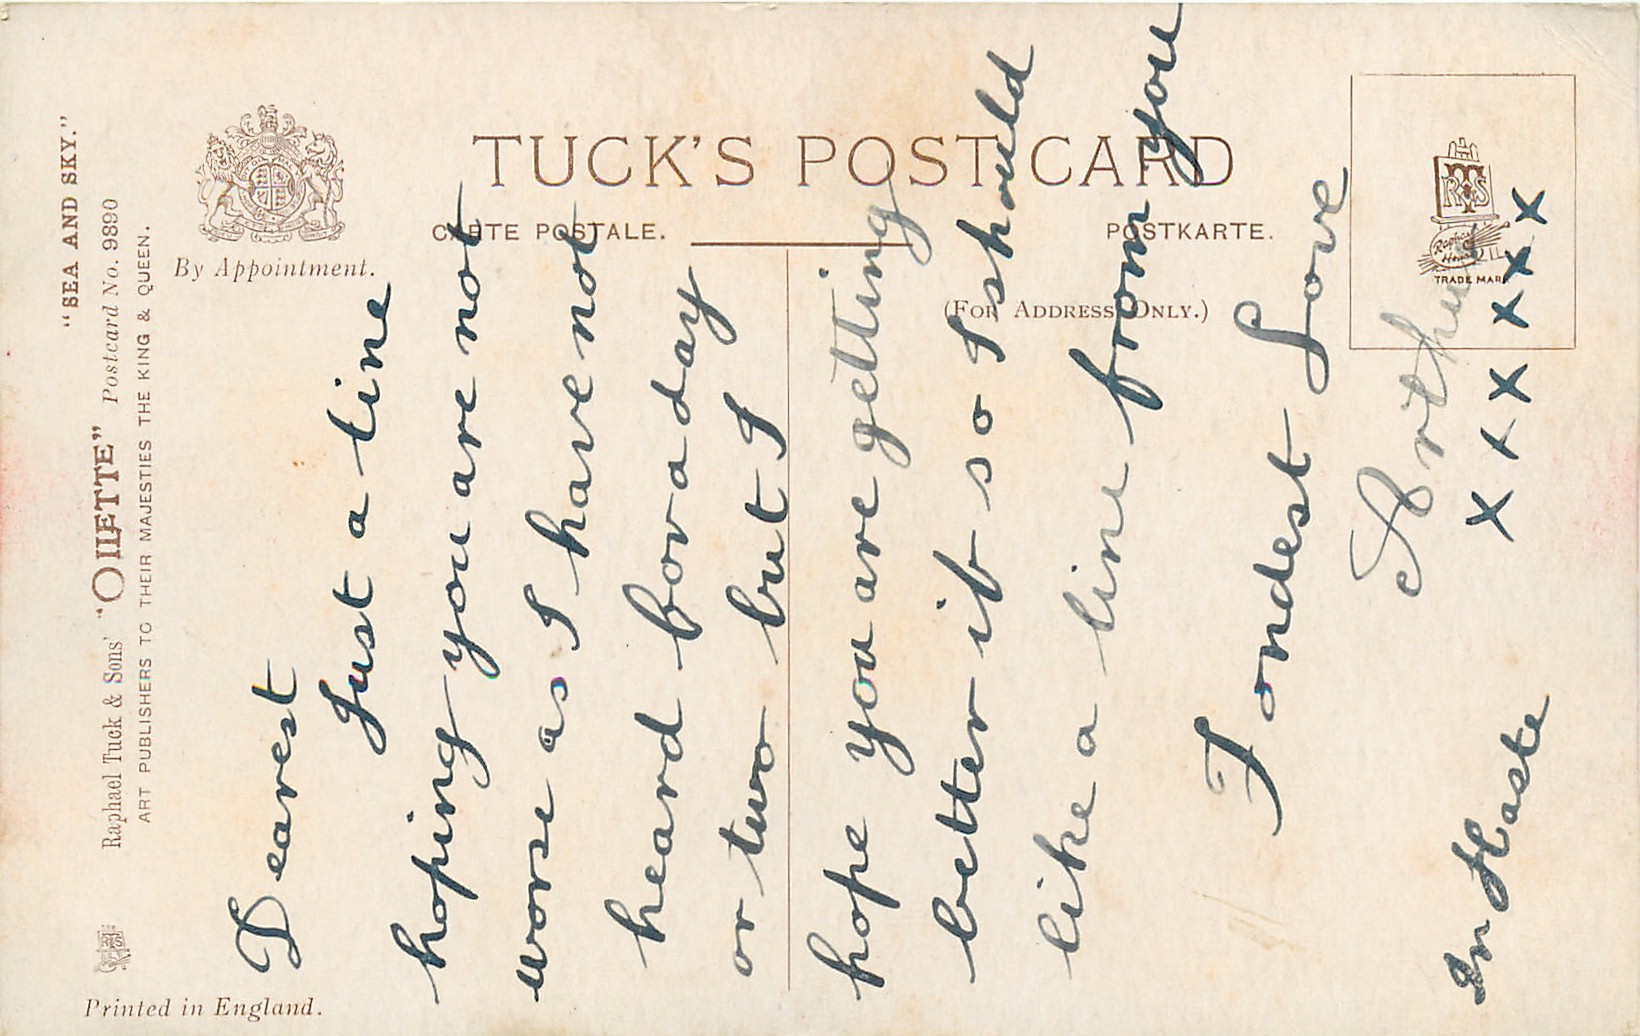 "SEA AND SKY."
Raphael Tuck & Sons' "OILETTE" Postcard No. 9890
ART PUBLISHERS TO THEIR MAJESTIES THE KING & QUEEN.
Printed in England.
By Appointment.
TUCK'S POST CARD
CARTE POSTALE.
POSTKARTE.
(FOR ADDRESS ONLY.)
RTS
Raphael
House
TRADE MARK
Dearest
Just a line
hoping you are not
worse as I have not
heard for a day
or two but I
hope you are getting
better if so I should
like a line from you
Fondest Love
Arthur
x x x x x x
In Haste